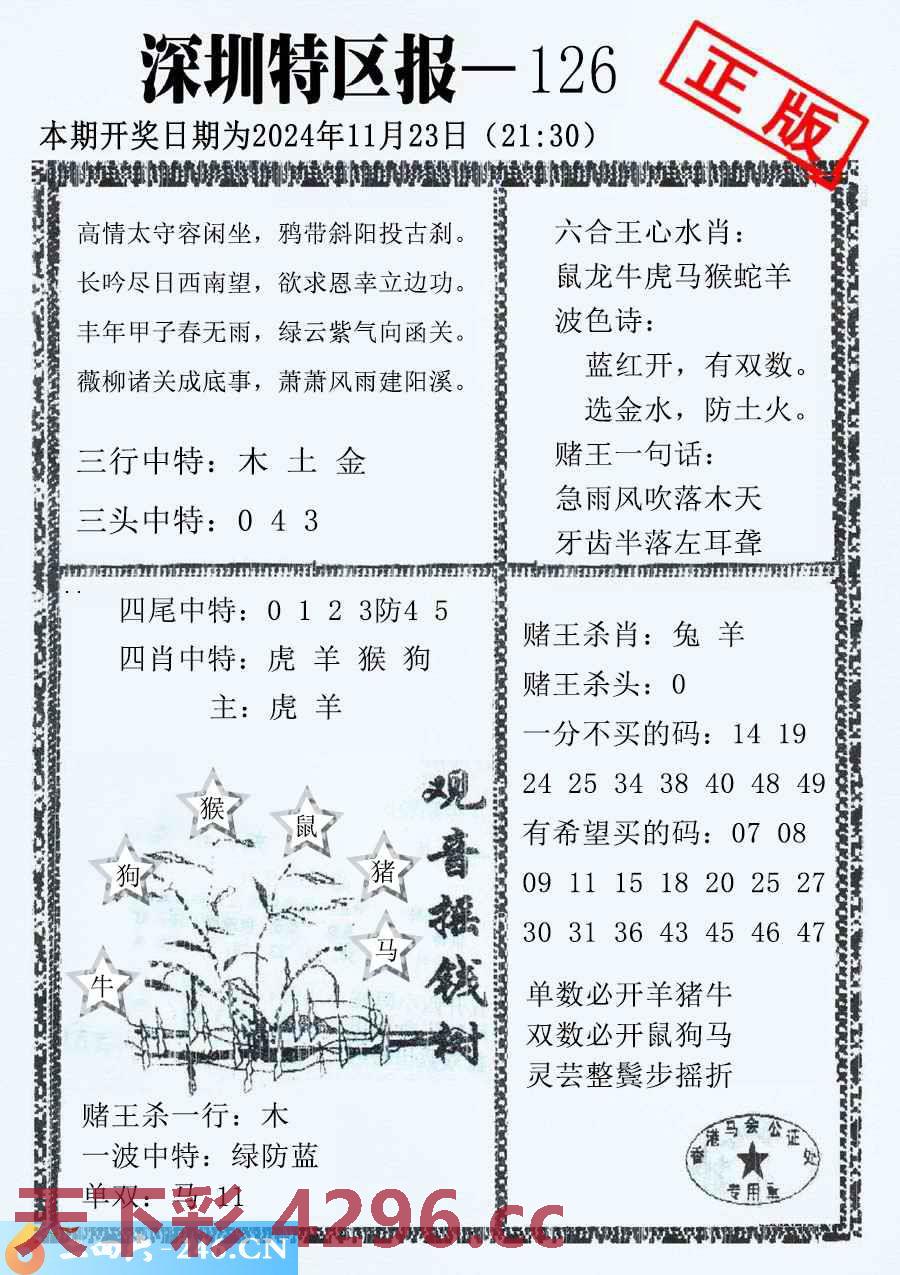 深圳特区报—126
正版
本期开奖日期为2024年11月23日（21:30）
高情太守容闲坐，鸦带斜阳投古刹。
长吟尽日西南望，欲求恩幸立边功。
丰年甲子春无雨，绿云紫气向函关。
薇柳诸关成底事，萧萧风雨建阳溪。
三行中特：木 土 金
三头中特：0 4 3
六合王心水肖：
鼠龙牛虎马猴蛇羊
波色诗：
蓝红开，有双数。
选金水，防土火。
赌王一句话：
急雨风吹落木天
牙齿半落左耳聋
四尾中特：0 1 2 3防4 5
四肖中特：虎 羊 猴 狗
主：虎 羊
猴
鼠
狗
猪
马
牛
观音摇钱树
赌王杀一行：木
一波中特：绿防蓝
单双：马 11
赌王杀肖：兔 羊
赌王杀头：0
一分不买的码：14 19
24 25 34 38 40 48 49
有希望买的码：07 08
09 11 15 18 20 25 27
30 31 36 43 45 46 47
单数必开羊猪牛
双数必开鼠狗马
灵芸整鬓步摇折
香港马会公证处
专用章
天下彩 4296.cc